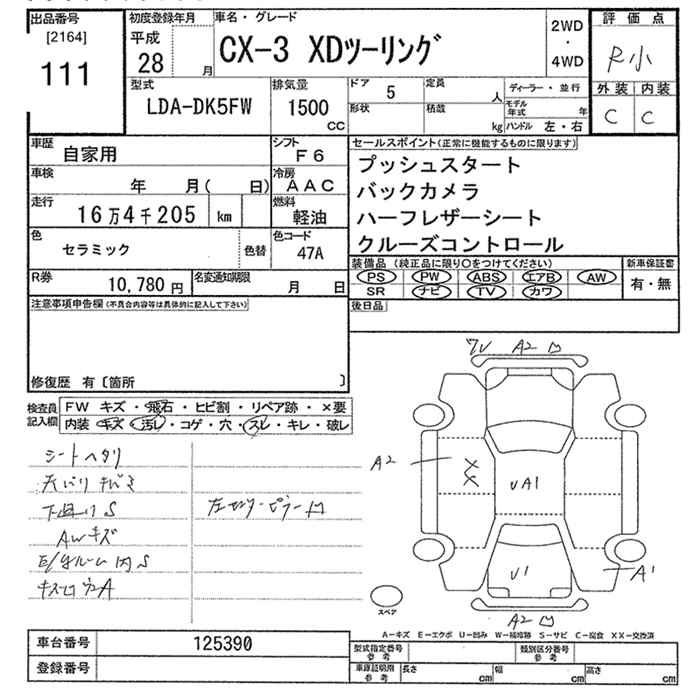 出品番号
[2164]
111
初度登録年月
平成
28 月
車名・グレード
CX-3 XDツーリング
2WD
・
4WD
評価点
R小
外装 内装
C C
型式
LDA-DK5FW
排気量
1500
CC
ドア
5
定員
人
形状
積載
kg
ディーラー・並行
モデル年式
年
ハンドル 左・右
車歴
自家用
シフト
F6
車検
年 月( 日)
冷房
AAC
走行
16万4千205 km
燃料
軽油
色
セラミック
色替
色コード
47A
R券
10,780 円
名変通知期限
月 日
セールスポイント(正常に機能するものに限ります)
プッシュスタート
バックカメラ
ハーフレザーシート
クルーズコントロール
装備品 (純正品に限り○をつけてください)
PS PW ABS エアB AW
SR ナビ TV カワ
新車保証書
有・無
後日品
注意事項申告欄(不具合内容等は具体的に記入して下さい)
修復歴 有〔箇所 〕
検査員記入欄
FW キズ・飛石・ヒビ割・リペア跡・×要
内装 キズ・汚レ・コゲ・穴・スレ・キレ・破レ
シートヘタリ
下廻りS
AWキズ
E/gルーム内S
A2
A2
XX
UA1
U1
A1
A2
スペア
A-キズ E-エクボ U-凹み W-補修跡 S-サビ C-腐食 XX-交換済
車台番号
125390
登録番号
型式指定番号
参考
類別区分番号
参考
車庫証明用
参考
長さ
cm
幅
cm
高さ
cm